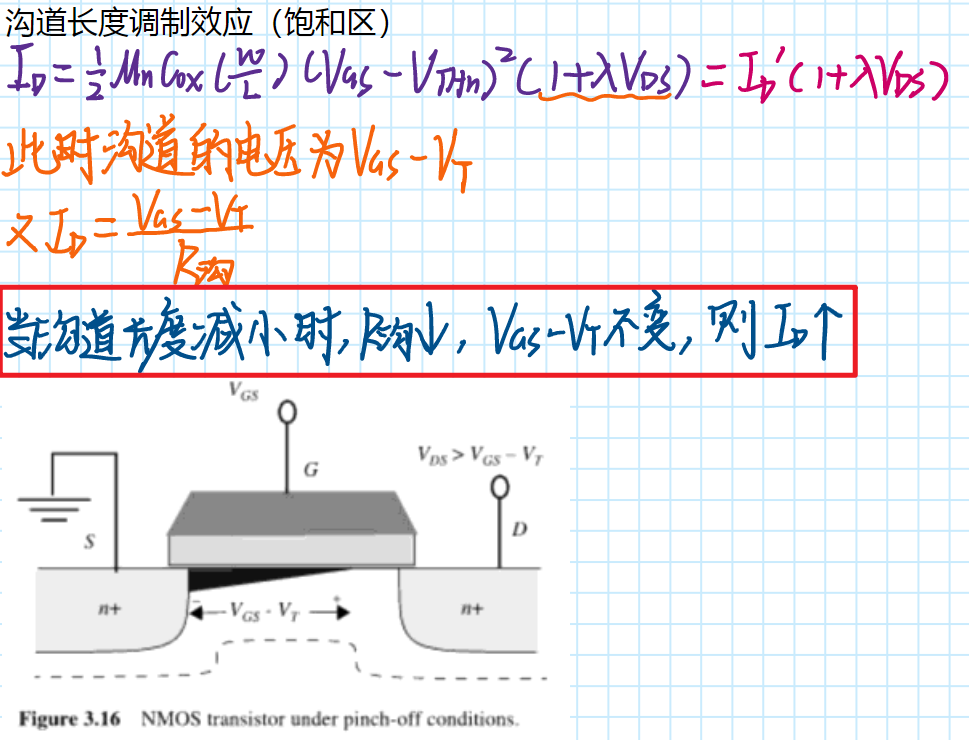 沟道长度调制效应（饱和区）
I_D = 1/2 μn Cox (W/L) (VGS - VTHn)² (1+λVDS) = I_D' (1+λVDS)
此时沟道的电压为VGS-VT
又 ID = (VGS-VT)/R沟
当沟道长度减小时, R沟↓, VGS-VT不变, 则ID↑
VGS
G
VDS > VGS - VT
D
S
n+
- VGS - VT +
n+
Figure 3.16 NMOS transistor under pinch-off conditions.